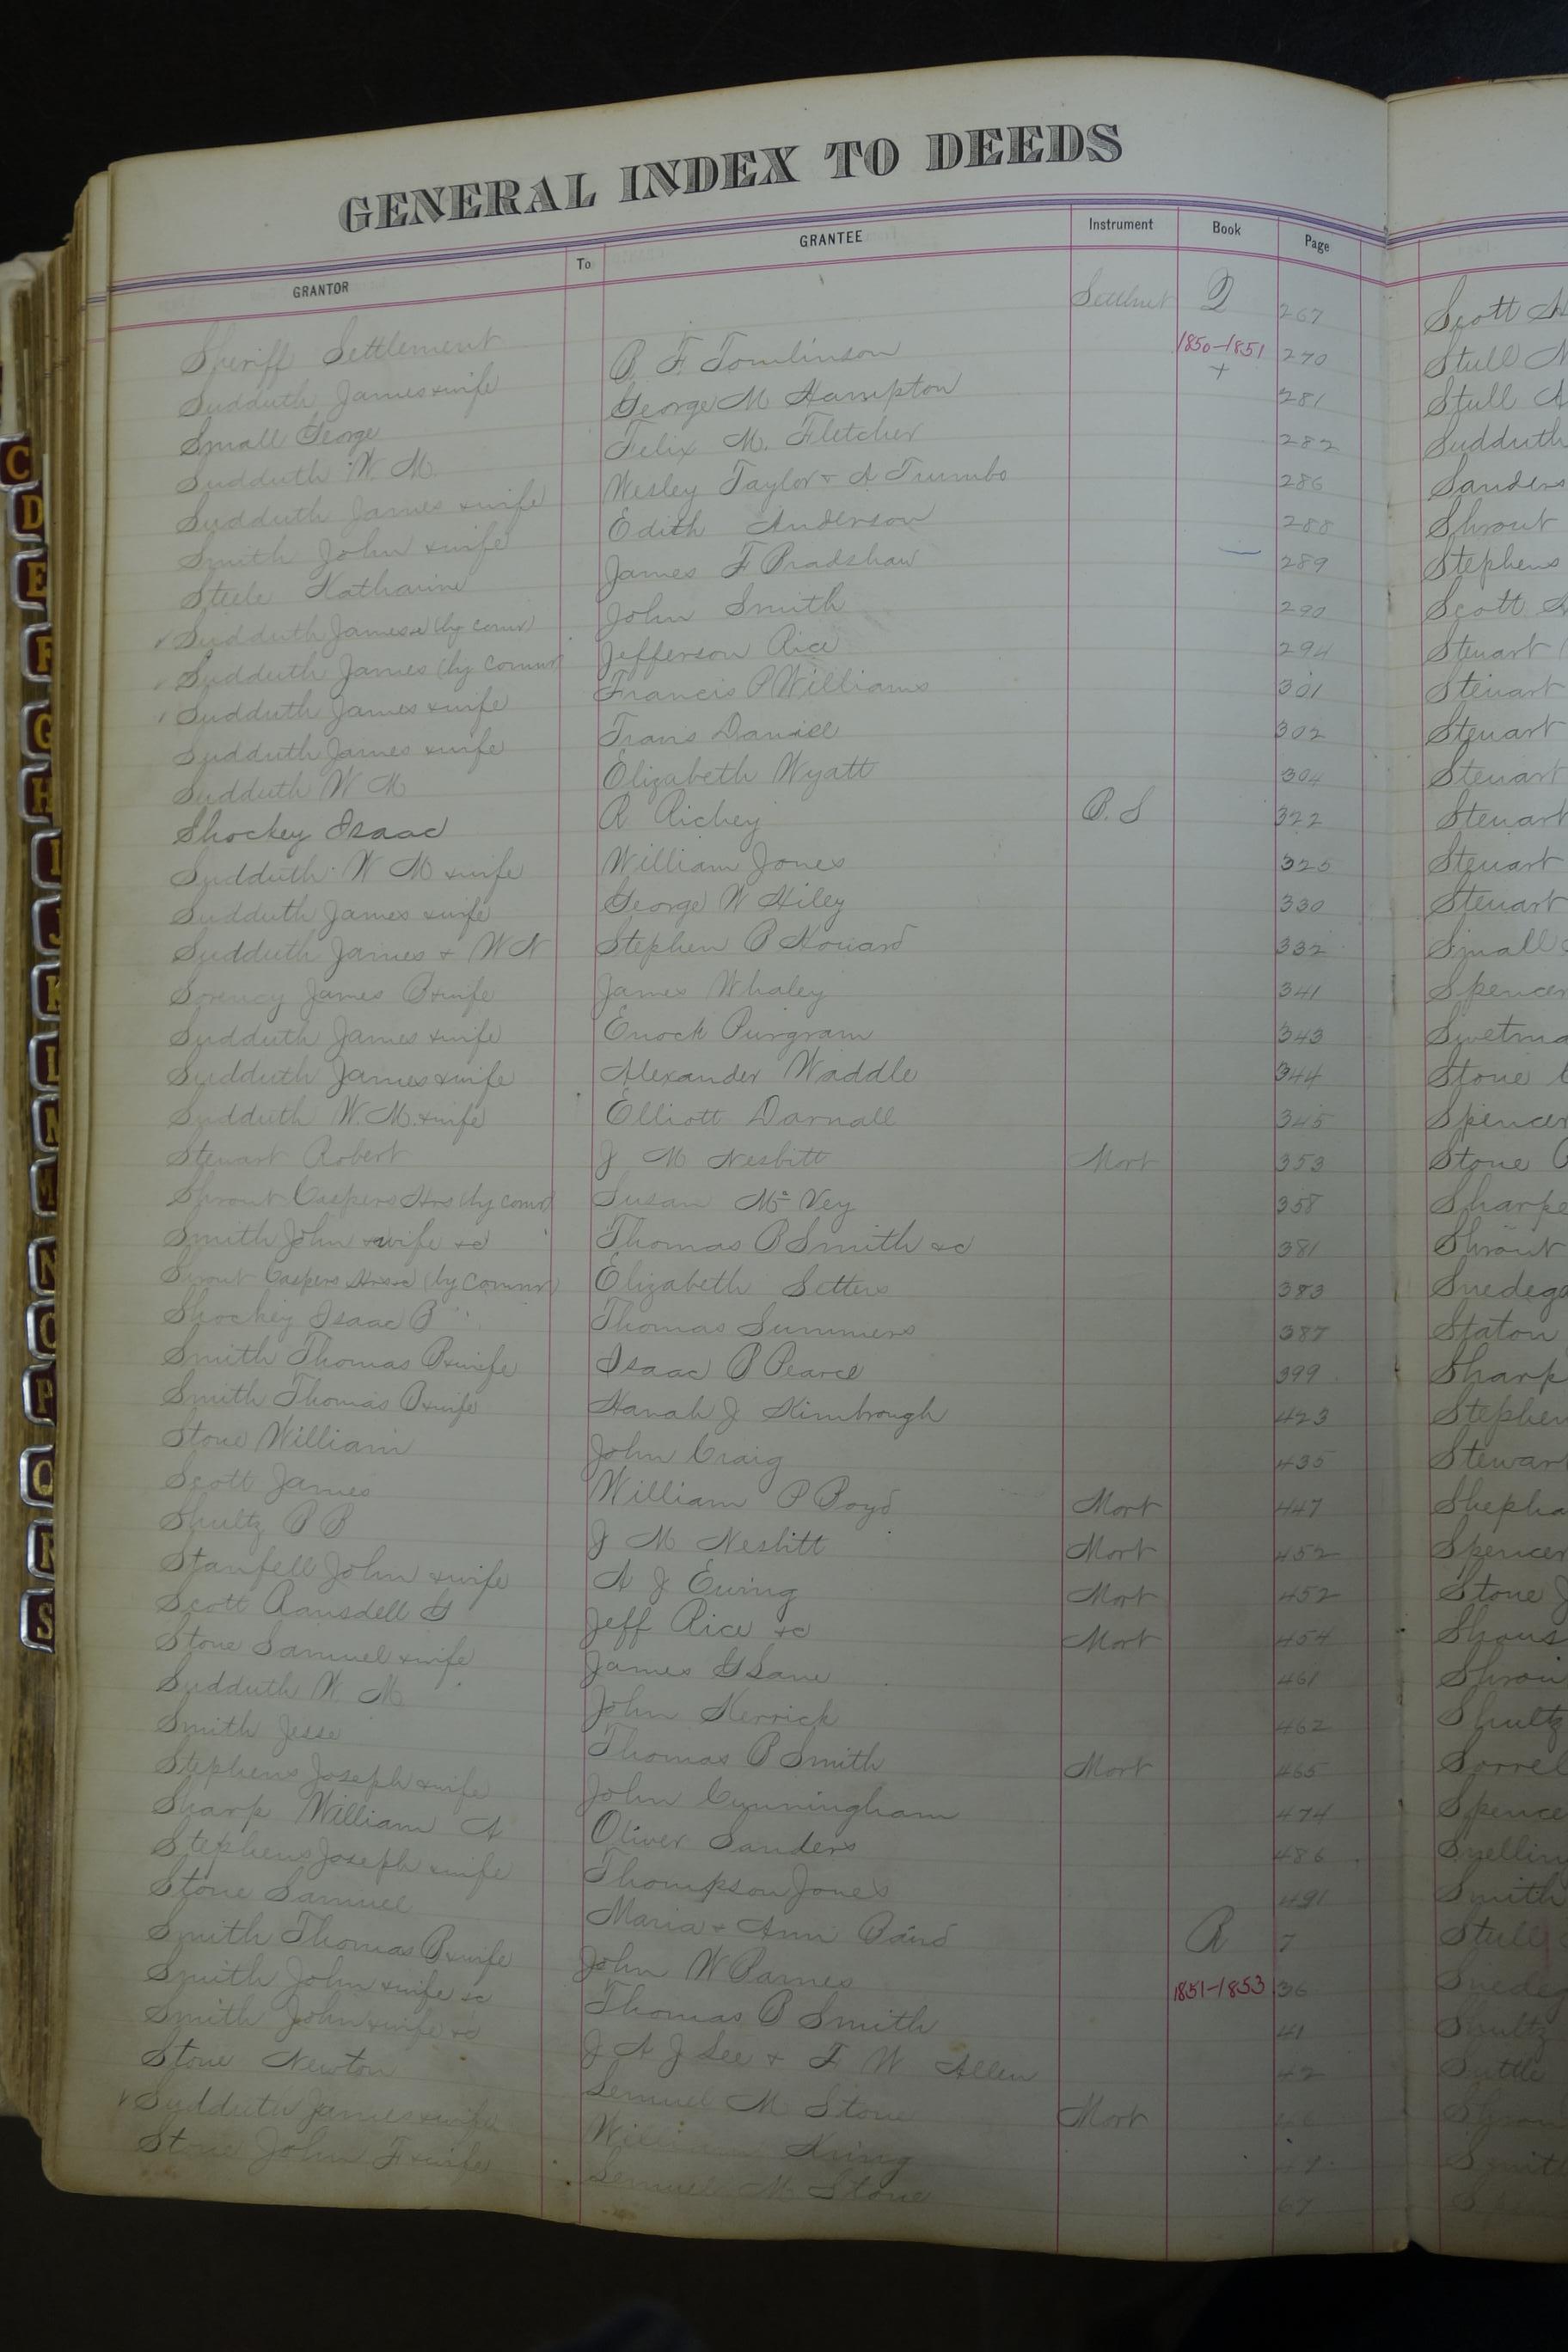 GENERAL INDEX TO DEEDS
GRANTOR To GRANTEE Instrument Book Page
Sheriff Settlement Settlmt Q 267
Sudduth James & wife B. F. Tomlinson 1850-1851 270
Small George George M Hampton + 281
Sudduth W. M Felix M. Fletcher 282
Sudduth James & wife Wesley Taylor & A Trumbo 286
Smith John & wife Edith Anderson 288
Steele Katharine James F Bradshaw 289
Sudduth James &c (by comr) John Smith 290
Sudduth James (by commr) Jefferson Rice 294
Sudduth James & wife Francis P Williams 301
Sudduth James & wife Travis Daniel 302
Sudduth W M Elizabeth Wyatt 304
Shockey Isaac R Richey B. S 322
Sudduth W M & wife William Jones 325
Sudduth James & wife George W Hiley 330
Sudduth James & W N Stephen B Howard 332
Sorency James B & wife James Whaley 341
Sudduth James & wife Enock Purgram 343
Sudduth James & wife Alexander Waddle 344
Sudduth W. M. & wife Elliott Darnall 345
Stewart Robert J M Nesbitt Mort 353
Shrout Caspers Hrs (by comr) Susan Mc Vey 358
Smith John & wife &c Thomas B Smith &c 381
Shrout Caspers Hrs &c (by commr) Elizabeth Setters 383
Shockey Isaac B Thomas Summers 387
Smith Thomas B & wife Isaac B Pearce 399
Smith Thomas B & wife Hanah J Kimbrough 423
Stone William John Craig 435
Scott James William P Boyd Mort 447
Shultz B B J M Nesbitt Mort 452
Stanfell John & wife A J Ewing Mort 452
Scott Ransdell G Jeff Rice &c Mort 454
Stone Samuel & wife James G Lane 461
Sudduth W. M John Herrick 462
Smith Jesse Thomas B Smith Mort 465
Stephens Joseph & wife John Cunningham 474
Sharp William A Oliver Sanders 486
Stephens Joseph & wife Thompson Jones 491
Stone Samuel Maria & Ann Baird R 7
Smith Thomas B & wife John W Barnes 1851-1853 36
Smith John & wife &c Thomas B Smith 41
Smith John & wife &c J A J Lee & F W Allen 42
Stone Newton Lemuel M Stone Mort
Sudduth James & wife William King
Stone John F & wife Lemuel M Stone 67
Scott
Stull
Stull
Sudduth
Sanders
Shrout
Stephens
Scott
Stewart
Stewart
Stewart
Stewart
Stewart
Stewart
Stewart
Small
Spencer
Swetma
Stone
Spencer
Stone
Sharpe
Shrout
Snedega
Staton
Sharp
Stephen
Stewart
Shepha
Spencer
Stone
Shous
Shrou
Shultz
Sorrel
Spence
Snellin
Smith
Stull
Snedeg
Shultz
Suttle
Shrou
Smith
C
D
E
F
G
H
I
J
K
L
M
N
O
P
Q
R
S